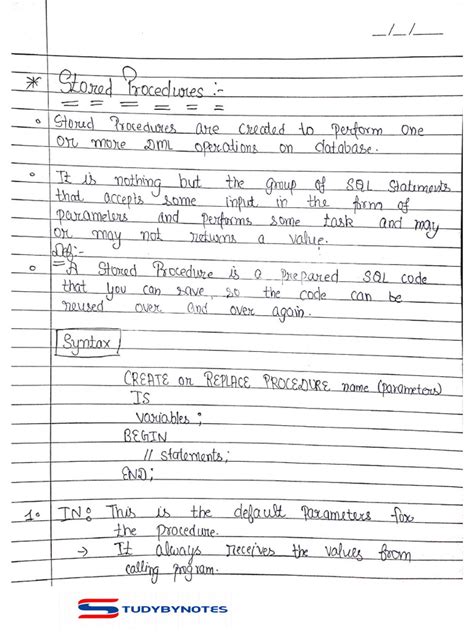 _/_/__
* Stored Procedures :-
° Stored Procedures are created to perform one
or more DML operations on database.
° It is nothing but the group of SQL statements
that accepts some input in the form of
parameters and performs some task and may
or may not returns a value.
Def:-
° A Stored Procedure is a prepared SQL code
that you can save, so the code can be
reused over and over again.
Syntax
CREATE or REPLACE PROCEDURE name (parameters)
IS
variables ;
BEGIN
// statements;
END;
1. IN: This is the default Parameters for
the procedure.
→ It always receives the values from
calling program.
STUDYBYNOTES